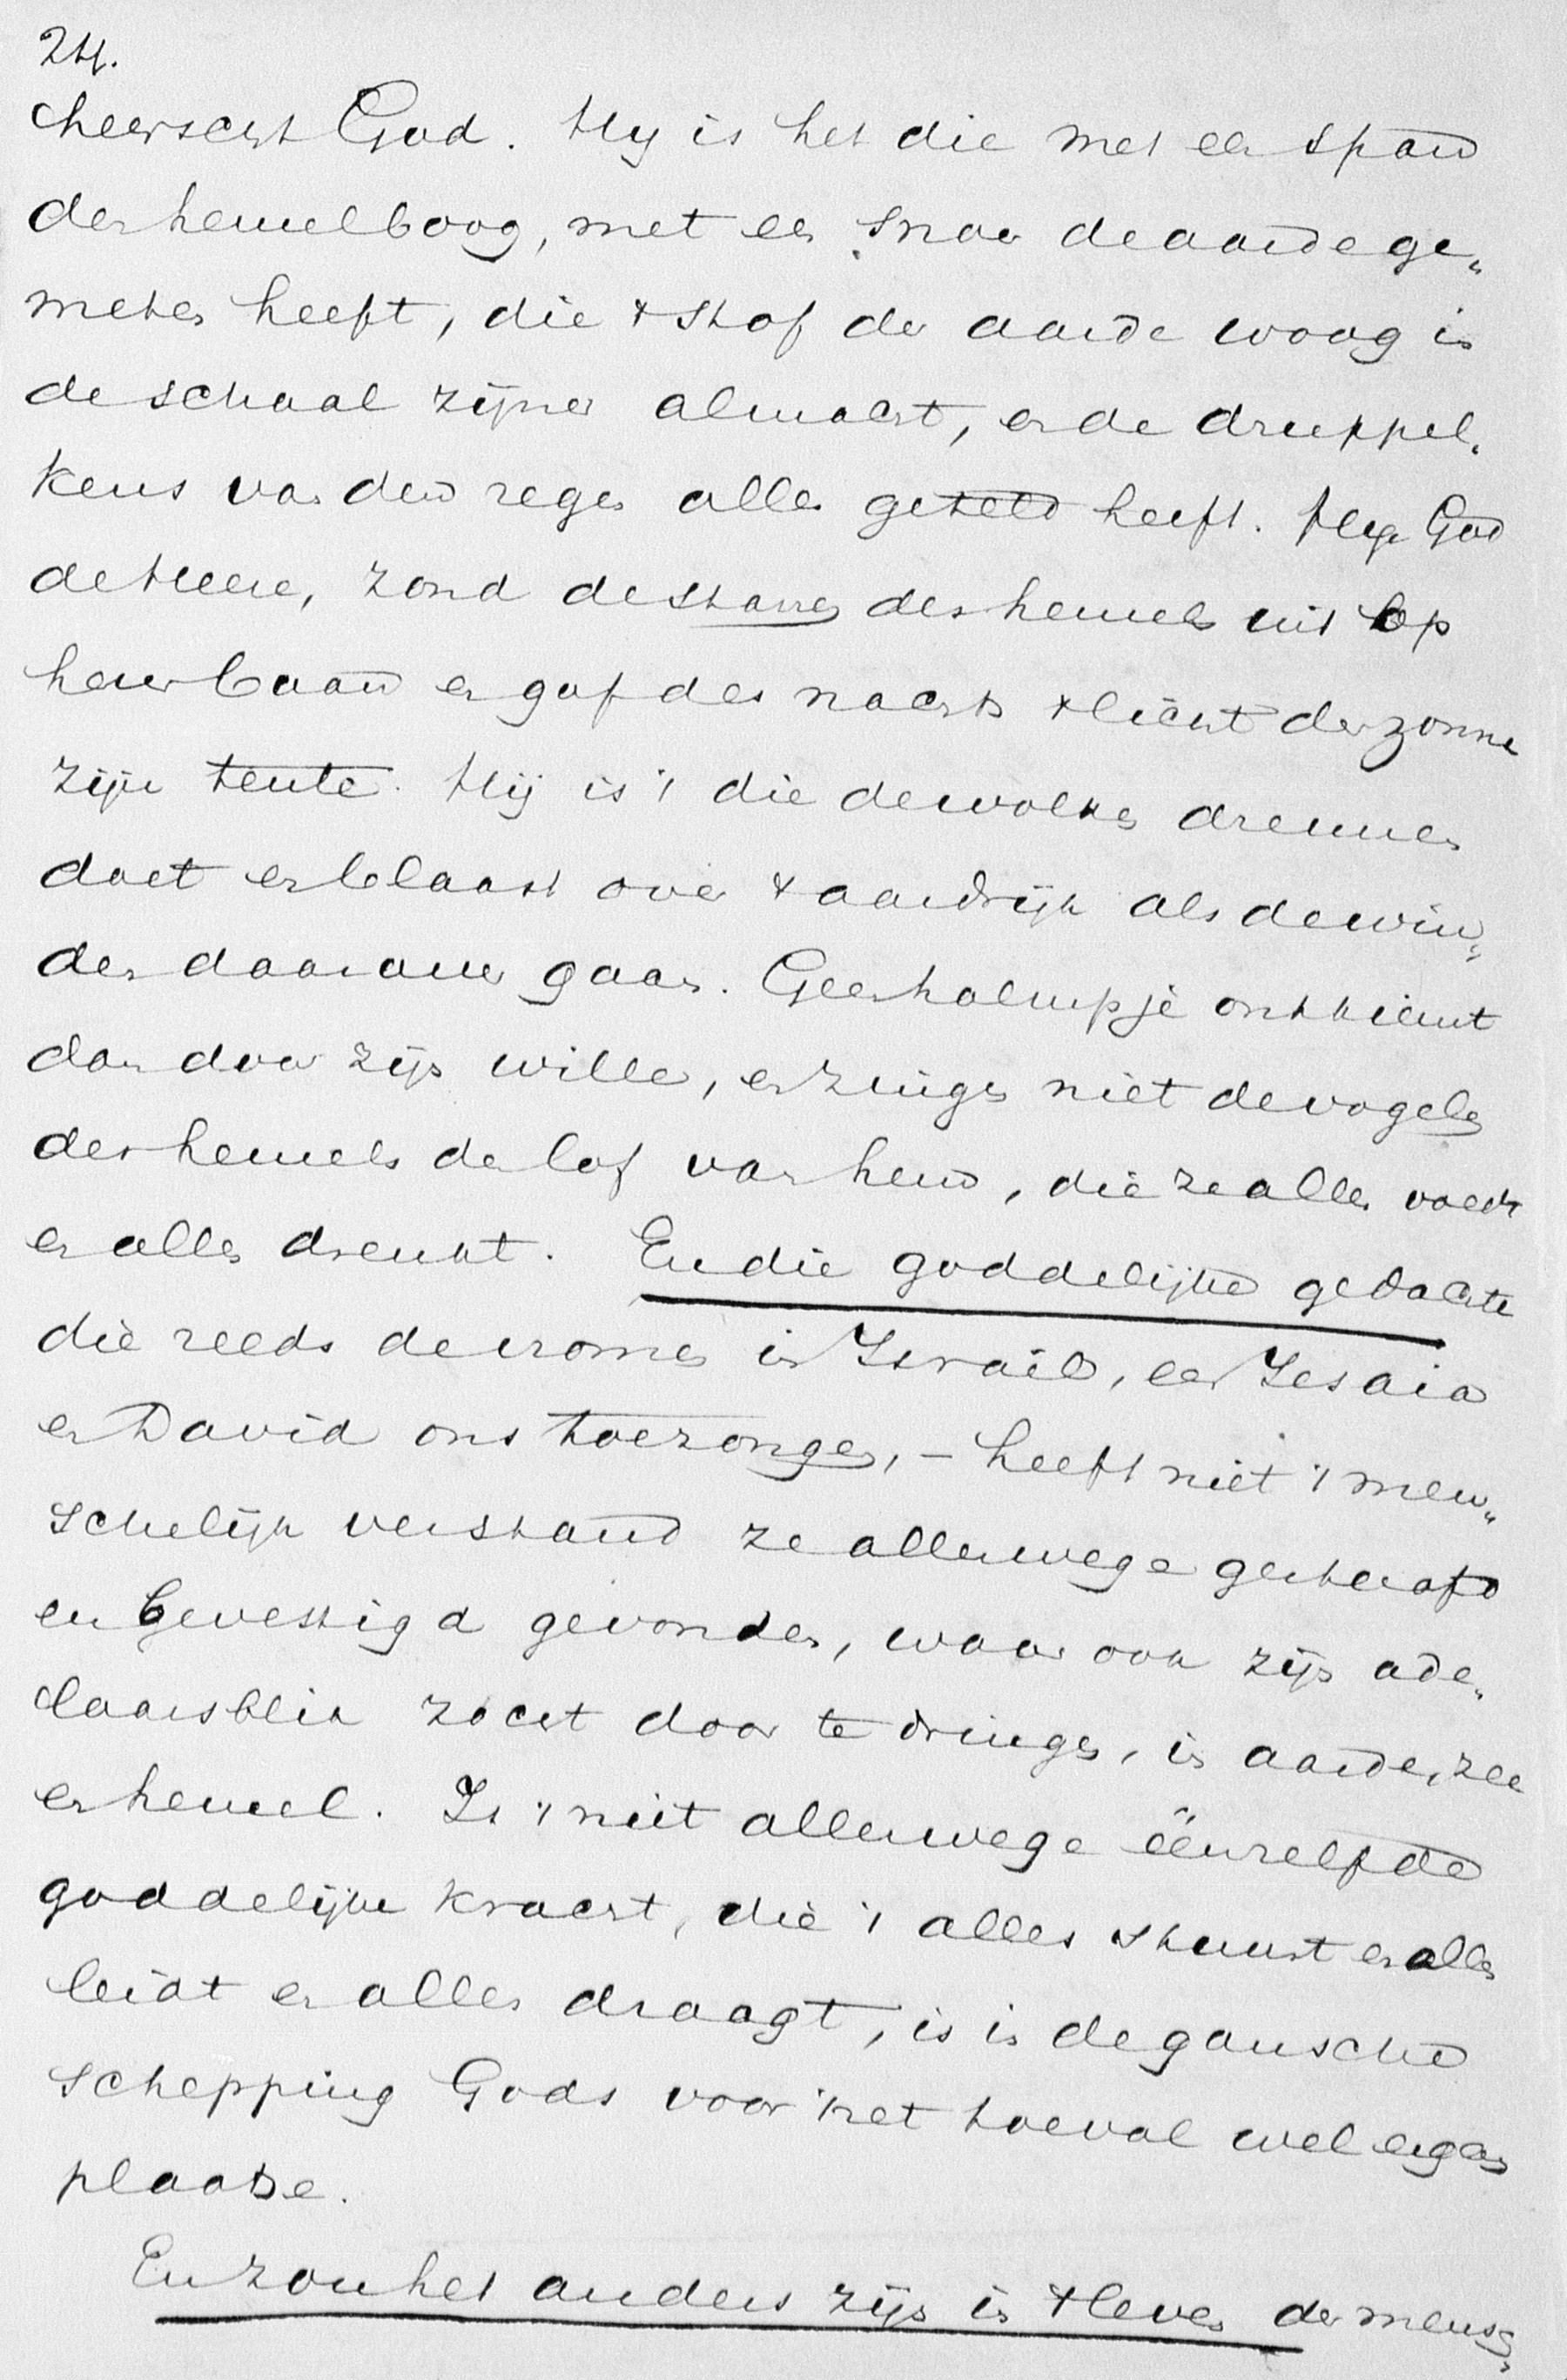 24.
heerscht God. Hy is het die met een span
den hemelboog, met een snoer de aarde ge„
meten heeft, die 't stof der aarde woog in
de schaal zijner almacht, en de druppel„
kens van den regen alle geteld heeft. Hij God
de Heere, zond de starren des hemels uit op
heur baan en gaf des nachts 't licht der zonne
zijn tente. Hij is 't die de wolken dreunen
doet en blaast over 't aardrijk als de win„
den daarover gaan. Geen halmpje ontkiemt
dan door zijn wille, en zingen niet de vogelen
des hemels den lof van hem, die ze alle voedt
en alle drenkt. En die goddelijke gedachte
die reeds de vromen in Israël, een Jesaia
en David ons toezongen, – heeft niet 't men„
schelijk verstand ze allerwege gestaafd
en bevestigd gevonden, waar ook zijn ade„
laarsblik zocht door te dringen, in aarde, zee
en hemel. Is 't niet allerwege éénzelfde
goddelijke kracht, die 't alles stuurt en alles
leidt en alles draagt, is in de gansche
schepping Gods voor 't toeval wel eigen
plaatse.
En zou het anders zijn in 't leven der mensch„